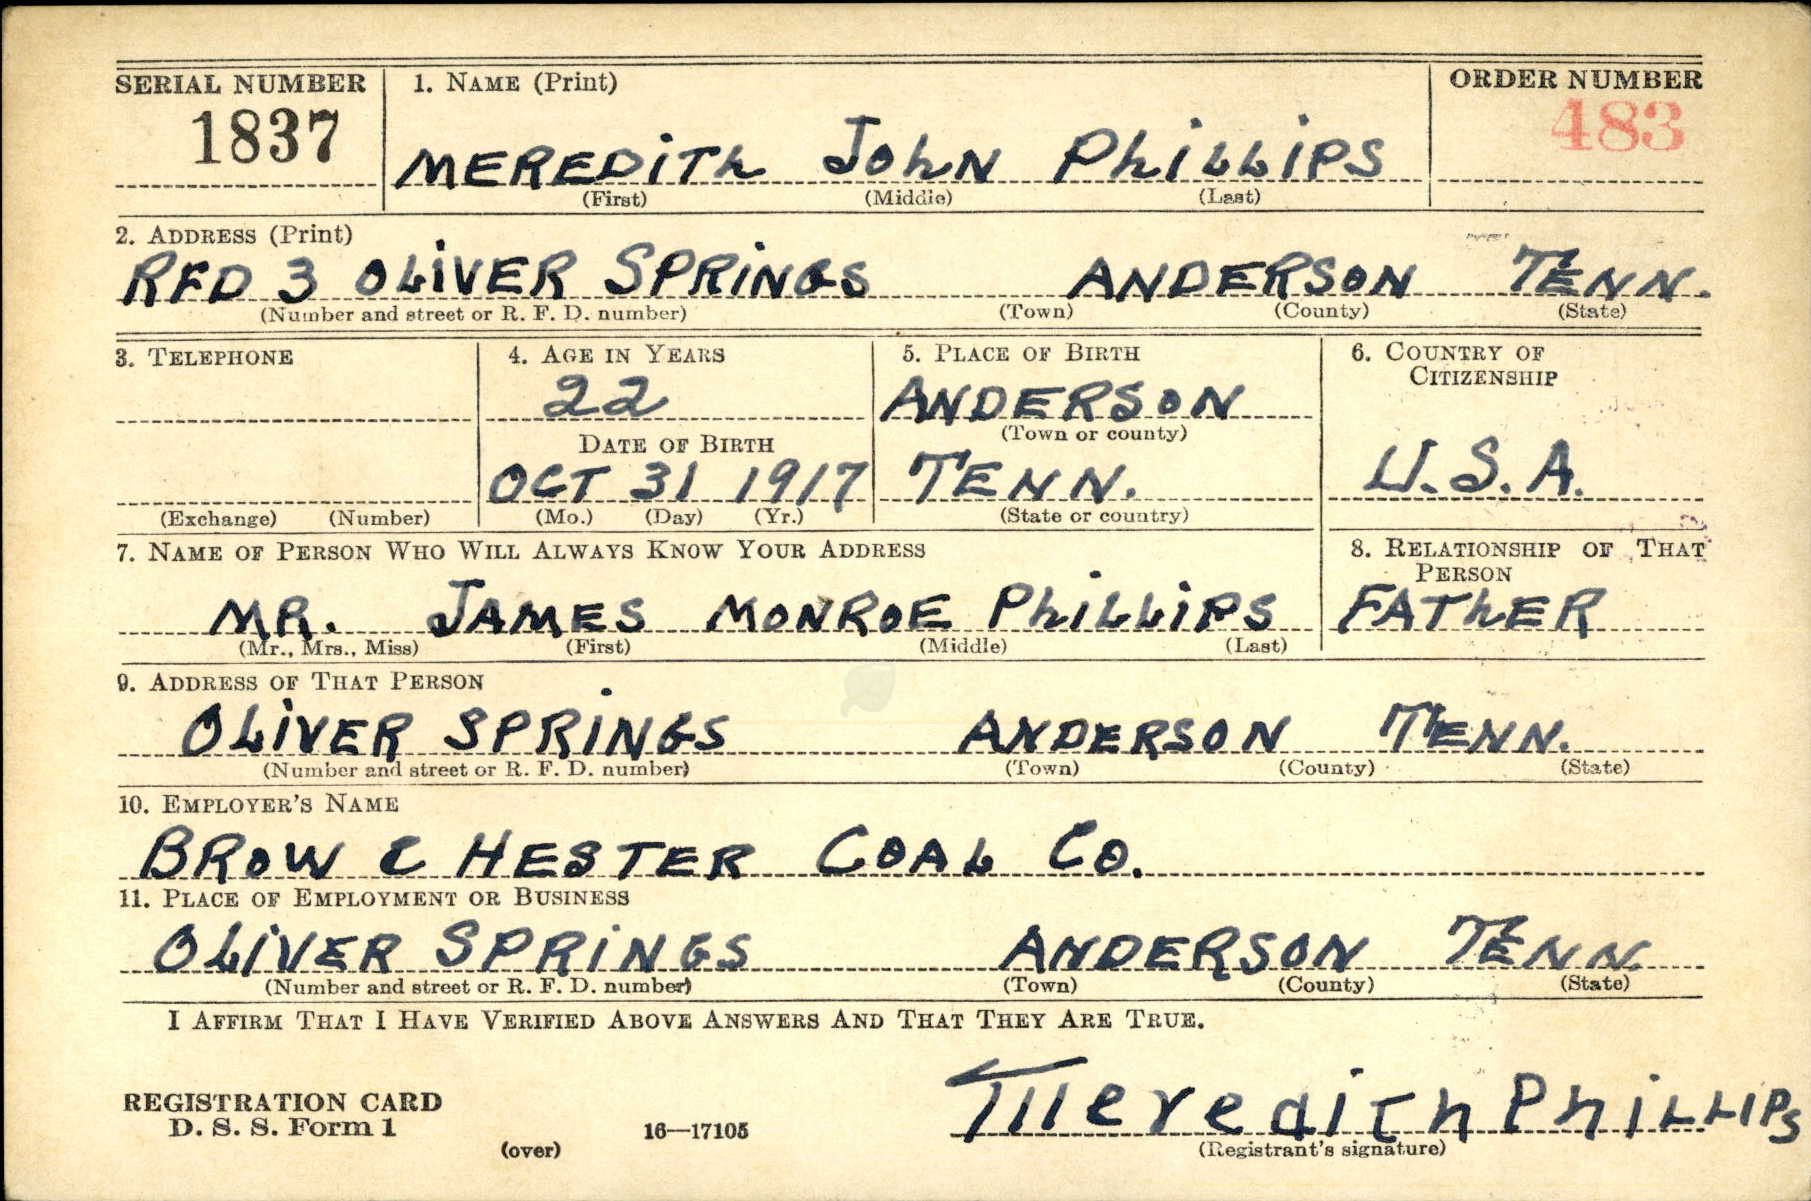 SERIAL NUMBER 1. NAME (Print) ORDER NUMBER
1837 MEREDITH JOHN PHILLIPS 483
(First) (Middle) (Last)
2. ADDRESS (Print)
RFD 3 OLIVER SPRINGS ANDERSON TENN.
(Number and street or R. F. D. number) (Town) (County) (State)
3. TELEPHONE 4. AGE IN YEARS 5. PLACE OF BIRTH 6. COUNTRY OF CITIZENSHIP
22 ANDERSON
DATE OF BIRTH (Town or county)
OCT 31 1917 TENN. U.S.A.
(Exchange) (Number) (Mo.) (Day) (Yr.) (State or country)
7. NAME OF PERSON WHO WILL ALWAYS KNOW YOUR ADDRESS 8. RELATIONSHIP OF THAT PERSON
MR. JAMES MONROE PHILLIPS FATHER
(Mr., Mrs., Miss) (First) (Middle) (Last)
9. ADDRESS OF THAT PERSON
OLIVER SPRINGS ANDERSON TENN.
(Number and street or R. F. D. number) (Town) (County) (State)
10. EMPLOYER'S NAME
BROW C HESTER COAL CO.
11. PLACE OF EMPLOYMENT OR BUSINESS
OLIVER SPRINGS ANDERSON TENN.
(Number and street or R. F. D. number) (Town) (County) (State)
I AFFIRM THAT I HAVE VERIFIED ABOVE ANSWERS AND THAT THEY ARE TRUE.
REGISTRATION CARD
D. S. S. Form 1 (over) 16—17105 Meredith Phillips
(Registrant's signature)